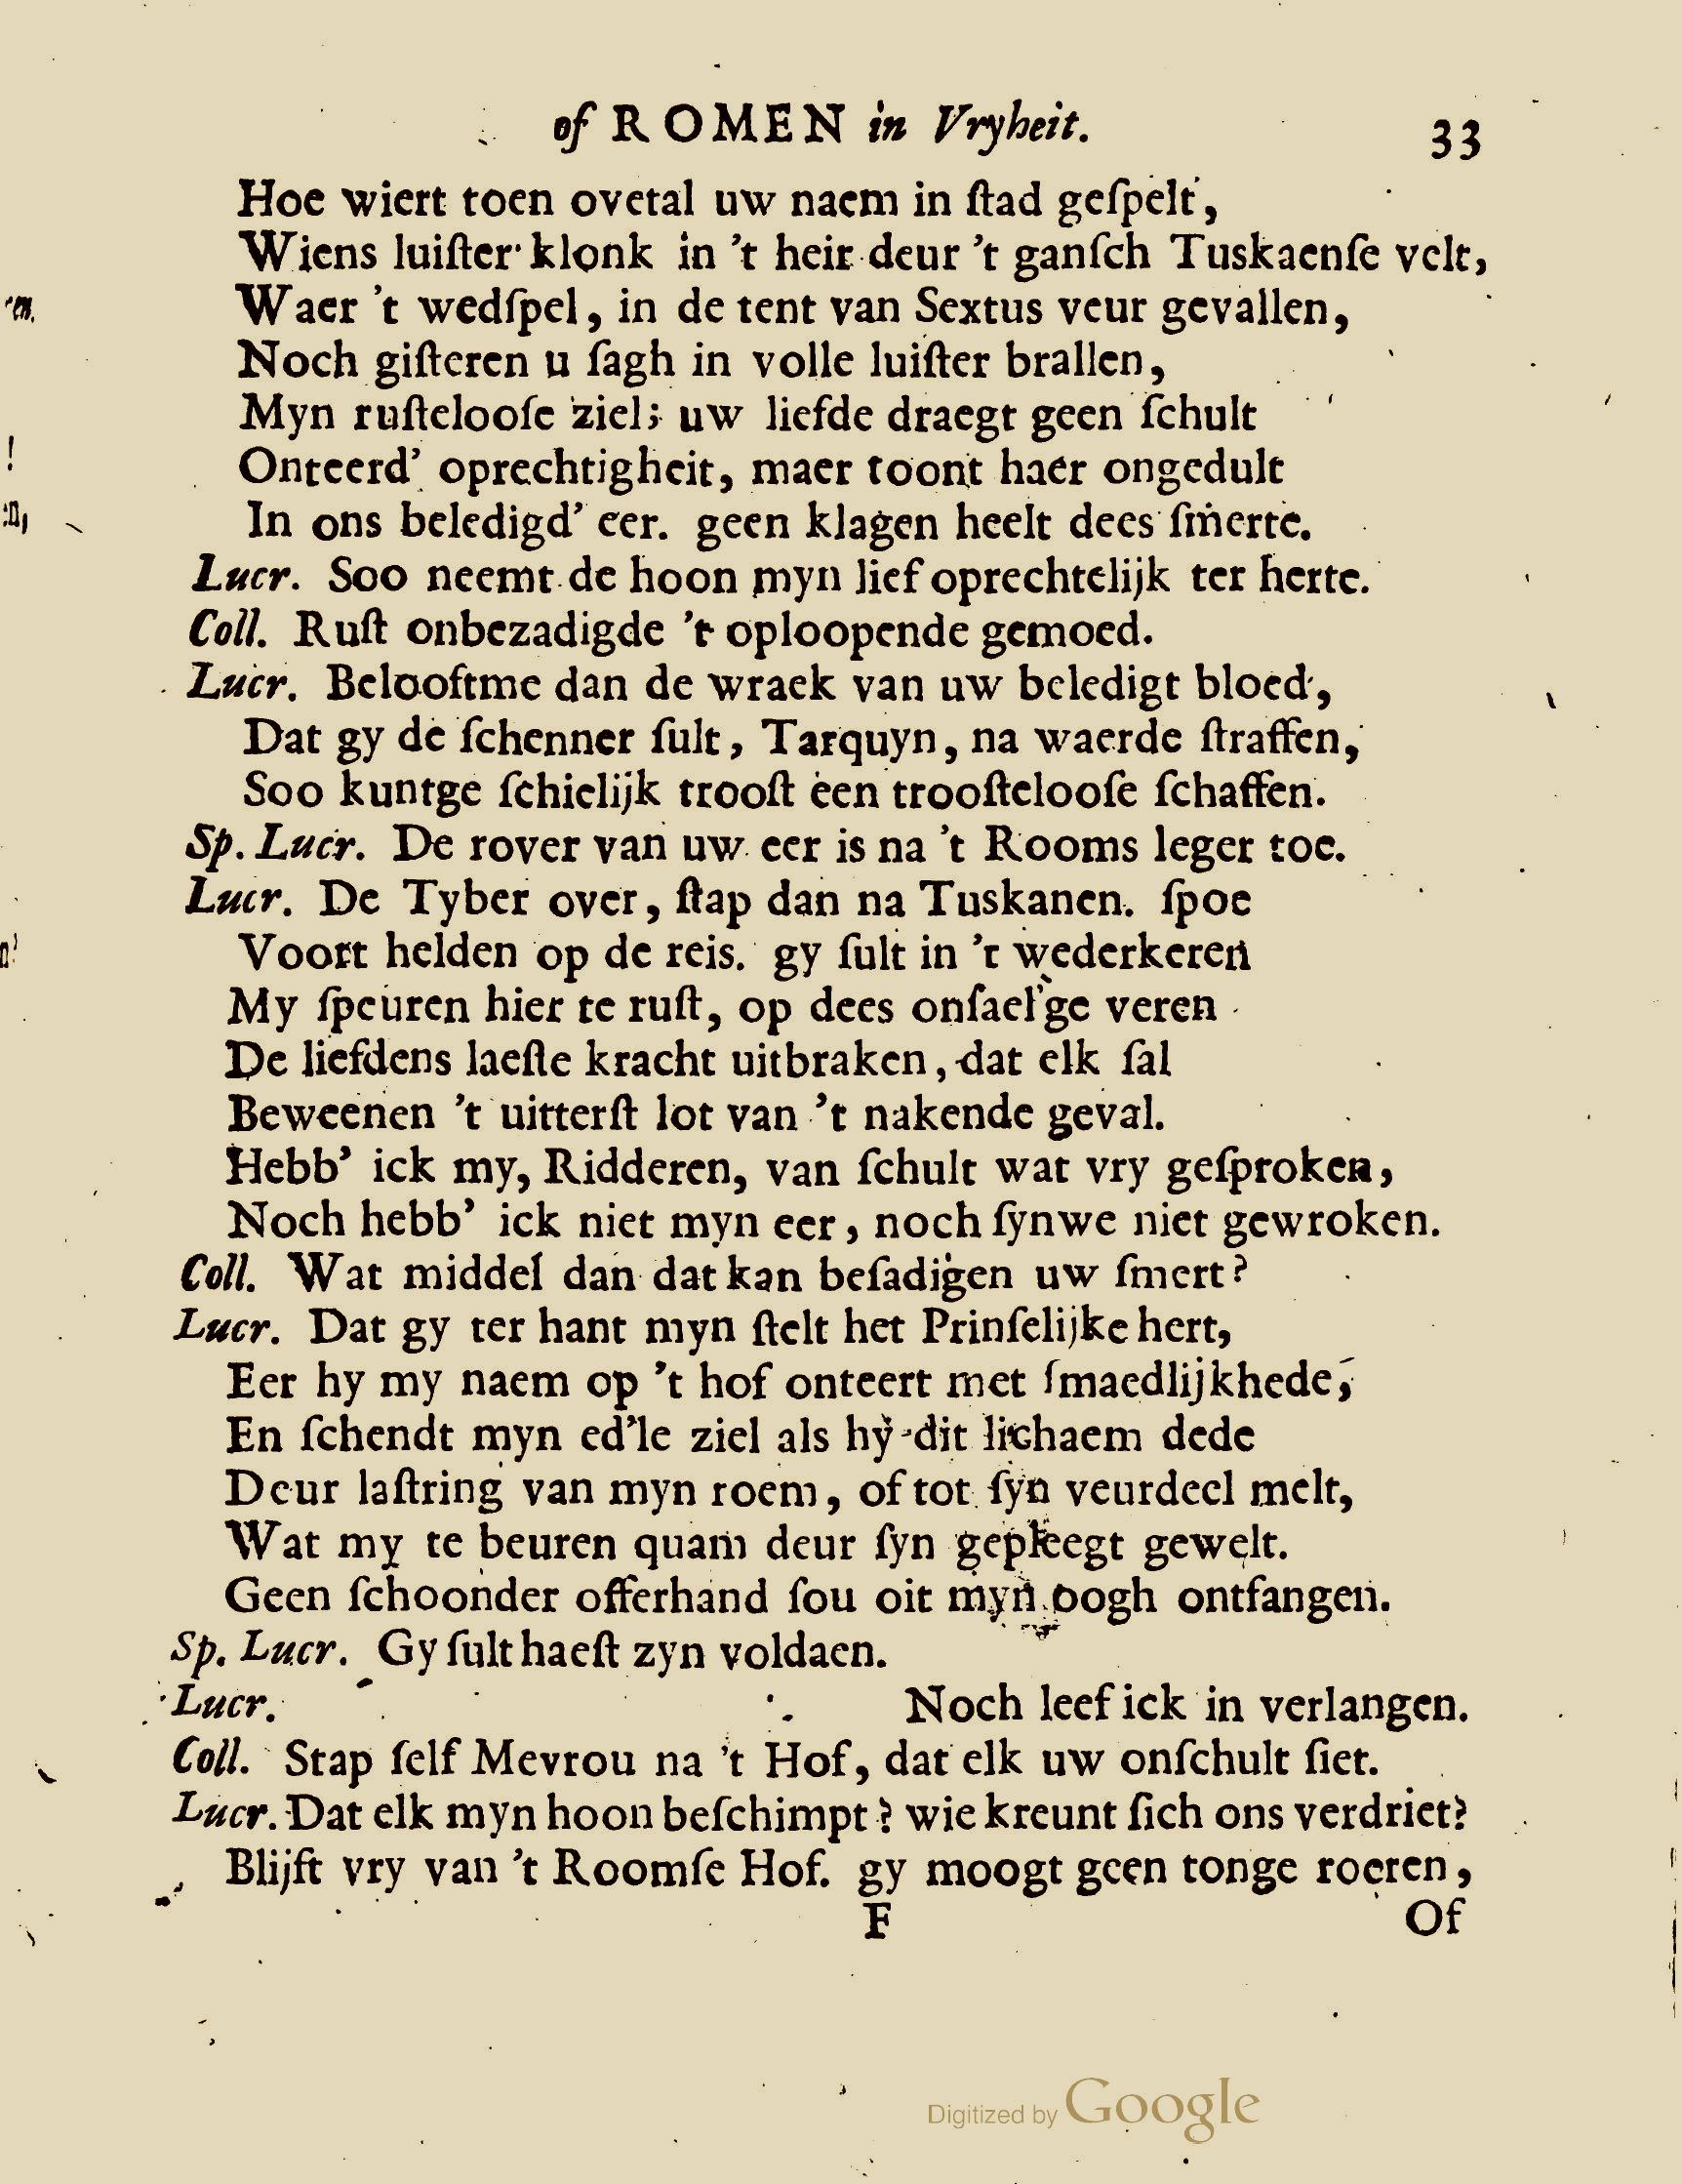 of ROMEN in Vryheit. 33
Hoe wiert toen overal uw naem in ſtad geſpelt,
Wiens luiſter klonk in 't heir deur 't ganſch Tuskaenſe velt,
Waer 't wedſpel, in de tent van Sextus veur gevallen,
Noch giſteren u ſagh in volle luiſter brallen,
Myn ruſtelooſe ziel; uw liefde draegt geen ſchult
Onteerd' oprechtigheit, maer toont haer ongedult
In ons beledigd' eer. geen klagen heelt dees ſmerte.
Lucr. Soo neemt de hoon myn lief oprechtelijk ter herte.
Coll. Ruſt onbezadigde 't oploopende gemoed.
Lucr. Belooftme dan de wraek van uw beledigt bloed,
Dat gy de ſchenner ſult, Tarquyn, na waerde ſtraffen,
Soo kuntge ſchielijk trooſt een trooſtelooſe ſchaffen.
Sp. Lucr. De rover van uw eer is na 't Rooms leger toe.
Lucr. De Tyber over, ſtap dan na Tuskanen. ſpoe
Voort helden op de reis. gy ſult in 't wederkeren
My ſpeuren hier te ruſt, op dees onſael'ge veren
De liefdens laeſte kracht uitbraken, dat elk ſal
Beweenen 't uitterſt lot van 't nakende geval.
Hebb' ick my, Ridderen, van ſchult wat vry geſproken,
Noch hebb' ick niet myn eer, noch ſynwe niet gewroken.
Coll. Wat middel dan dat kan beſadigen uw ſmert?
Lucr. Dat gy ter hant myn ſtelt het Prinſelijke hert,
Eer hy my naem op 't hof onteert met ſmaedlijkhede,
En ſchendt myn ed'le ziel als hy dit lichaem dede
Deur laſtring van myn roem, of tot ſyn veurdeel melt,
Wat my te beuren quam deur ſyn gepleegt gewelt.
Geen ſchoonder offerhand ſou oit myn oogh ontfangen.
Sp. Lucr. Gy ſult haeſt zyn voldaen.
Lucr. Noch leef ick in verlangen.
Coll. Stap ſelf Mevrou na 't Hof, dat elk uw onſchult ſiet.
Lucr. Dat elk myn hoon beſchimpt? wie kreunt ſich ons verdriet?
Blijft vry van 't Roomſe Hof. gy moogt geen tonge roeren,
F Of
Digitized by Google